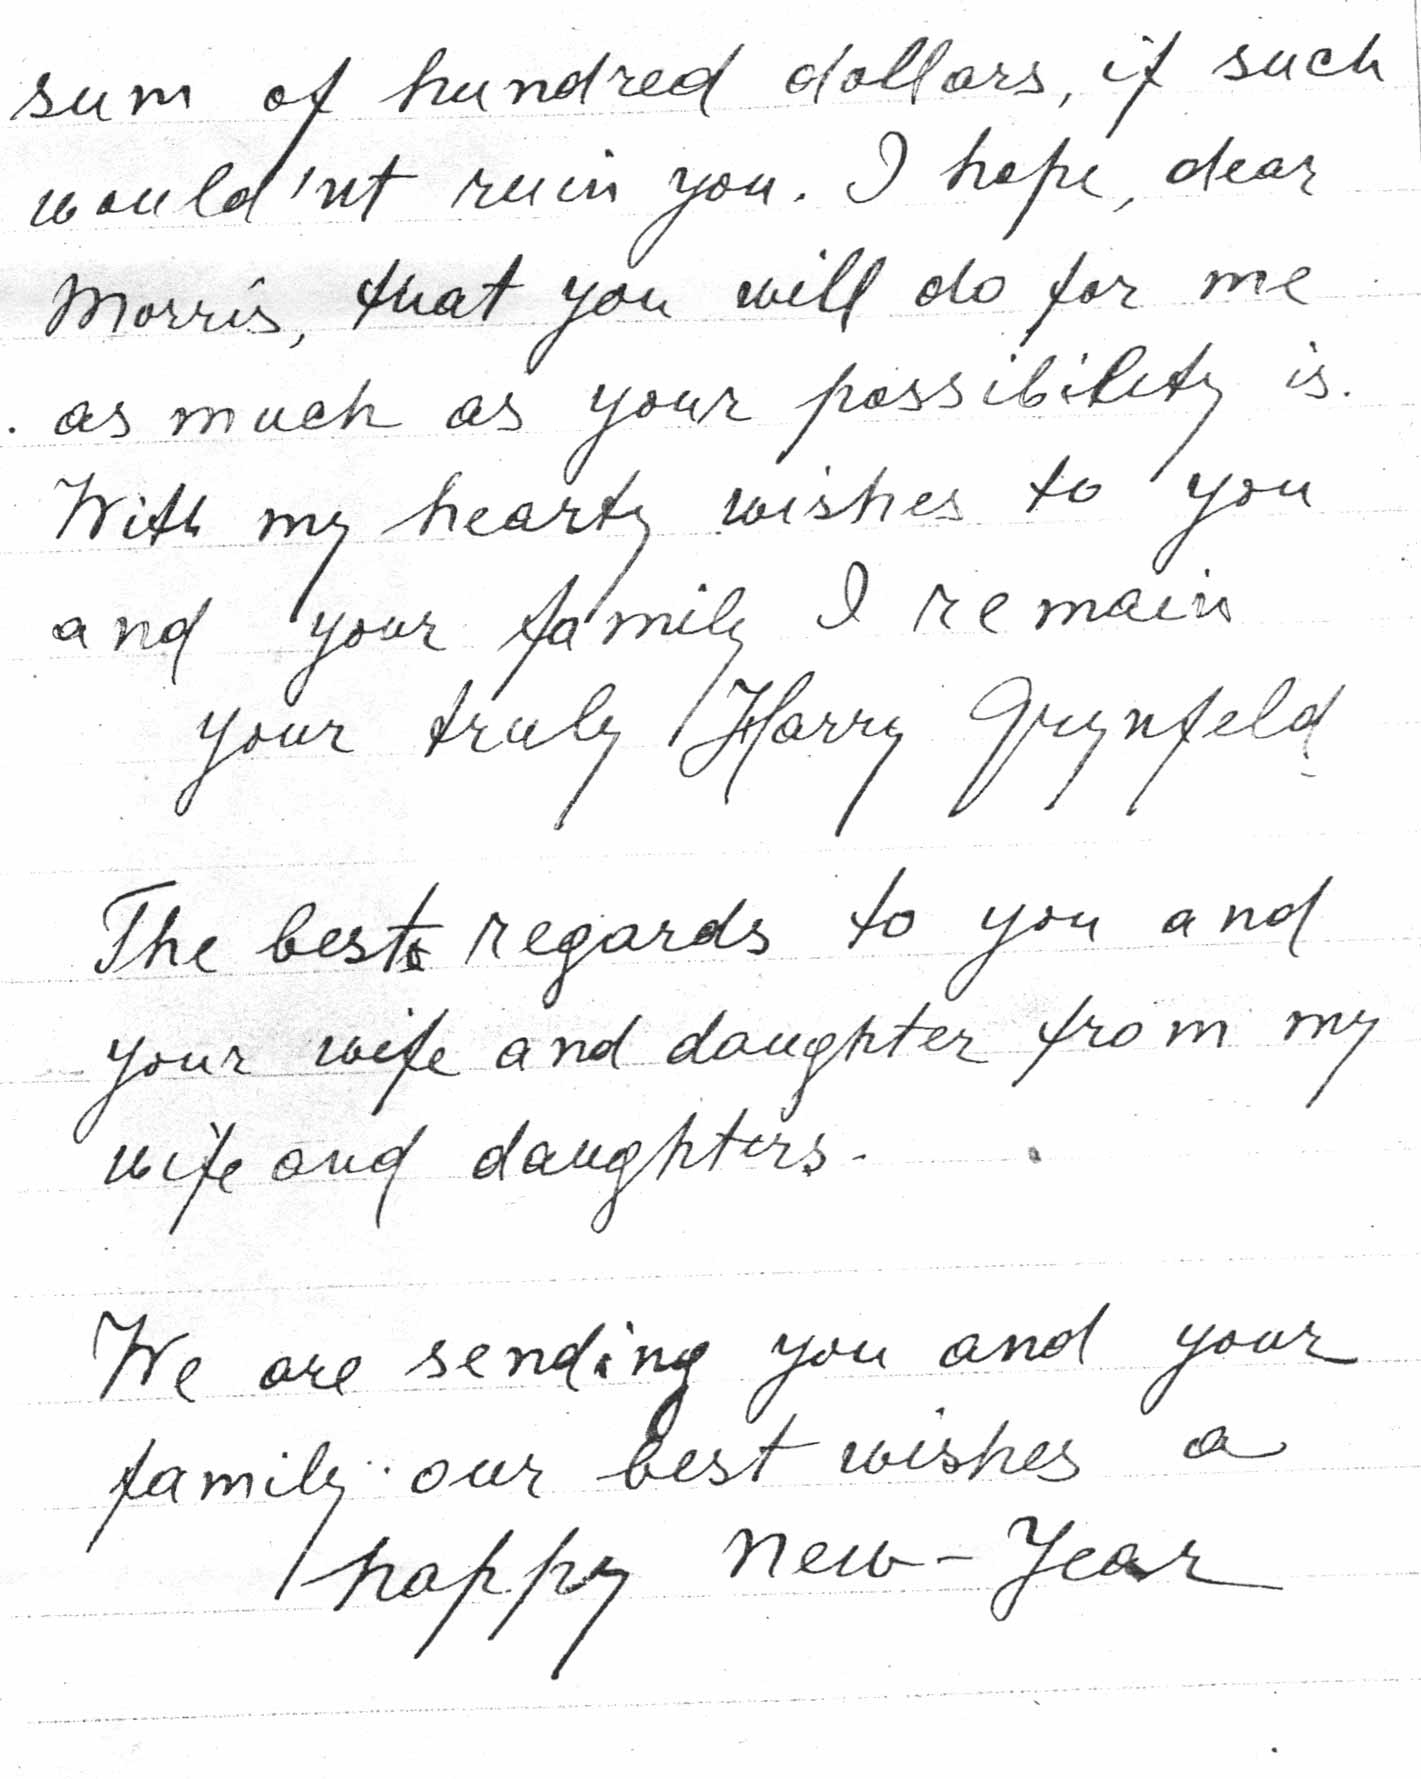 sum of hundred dollars, if such
would'nt ruin you. I hope, dear
Morris, that you will do for me
as much as your possibility is.
With my hearty wishes to you
and your family I remain
your truly Harry Grynfeld
The best regards to you and
your wife and daughter from my
wife and daughters.
We are sending you and your
family our best wishes a
happy New-Year